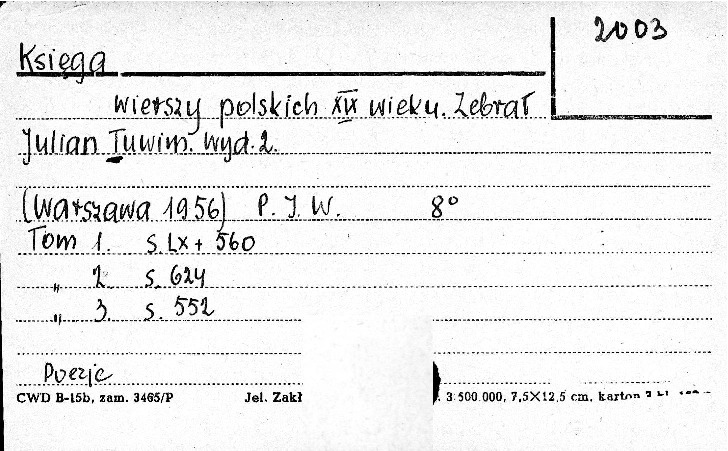 2003
Księga
wierszy polskich XIX wieku. Zebrał
Julian Tuwim. Wyd. 2.
(Warszawa 1956) P. I. W. 8°
Tom 1. s. LX + 560
„ 2. s. 624
„ 3. s. 552
Poezje
CWD B-15b, zam. 3465/P Jel. Zakł . 3.500.000, 7,5×12,5 cm, karton